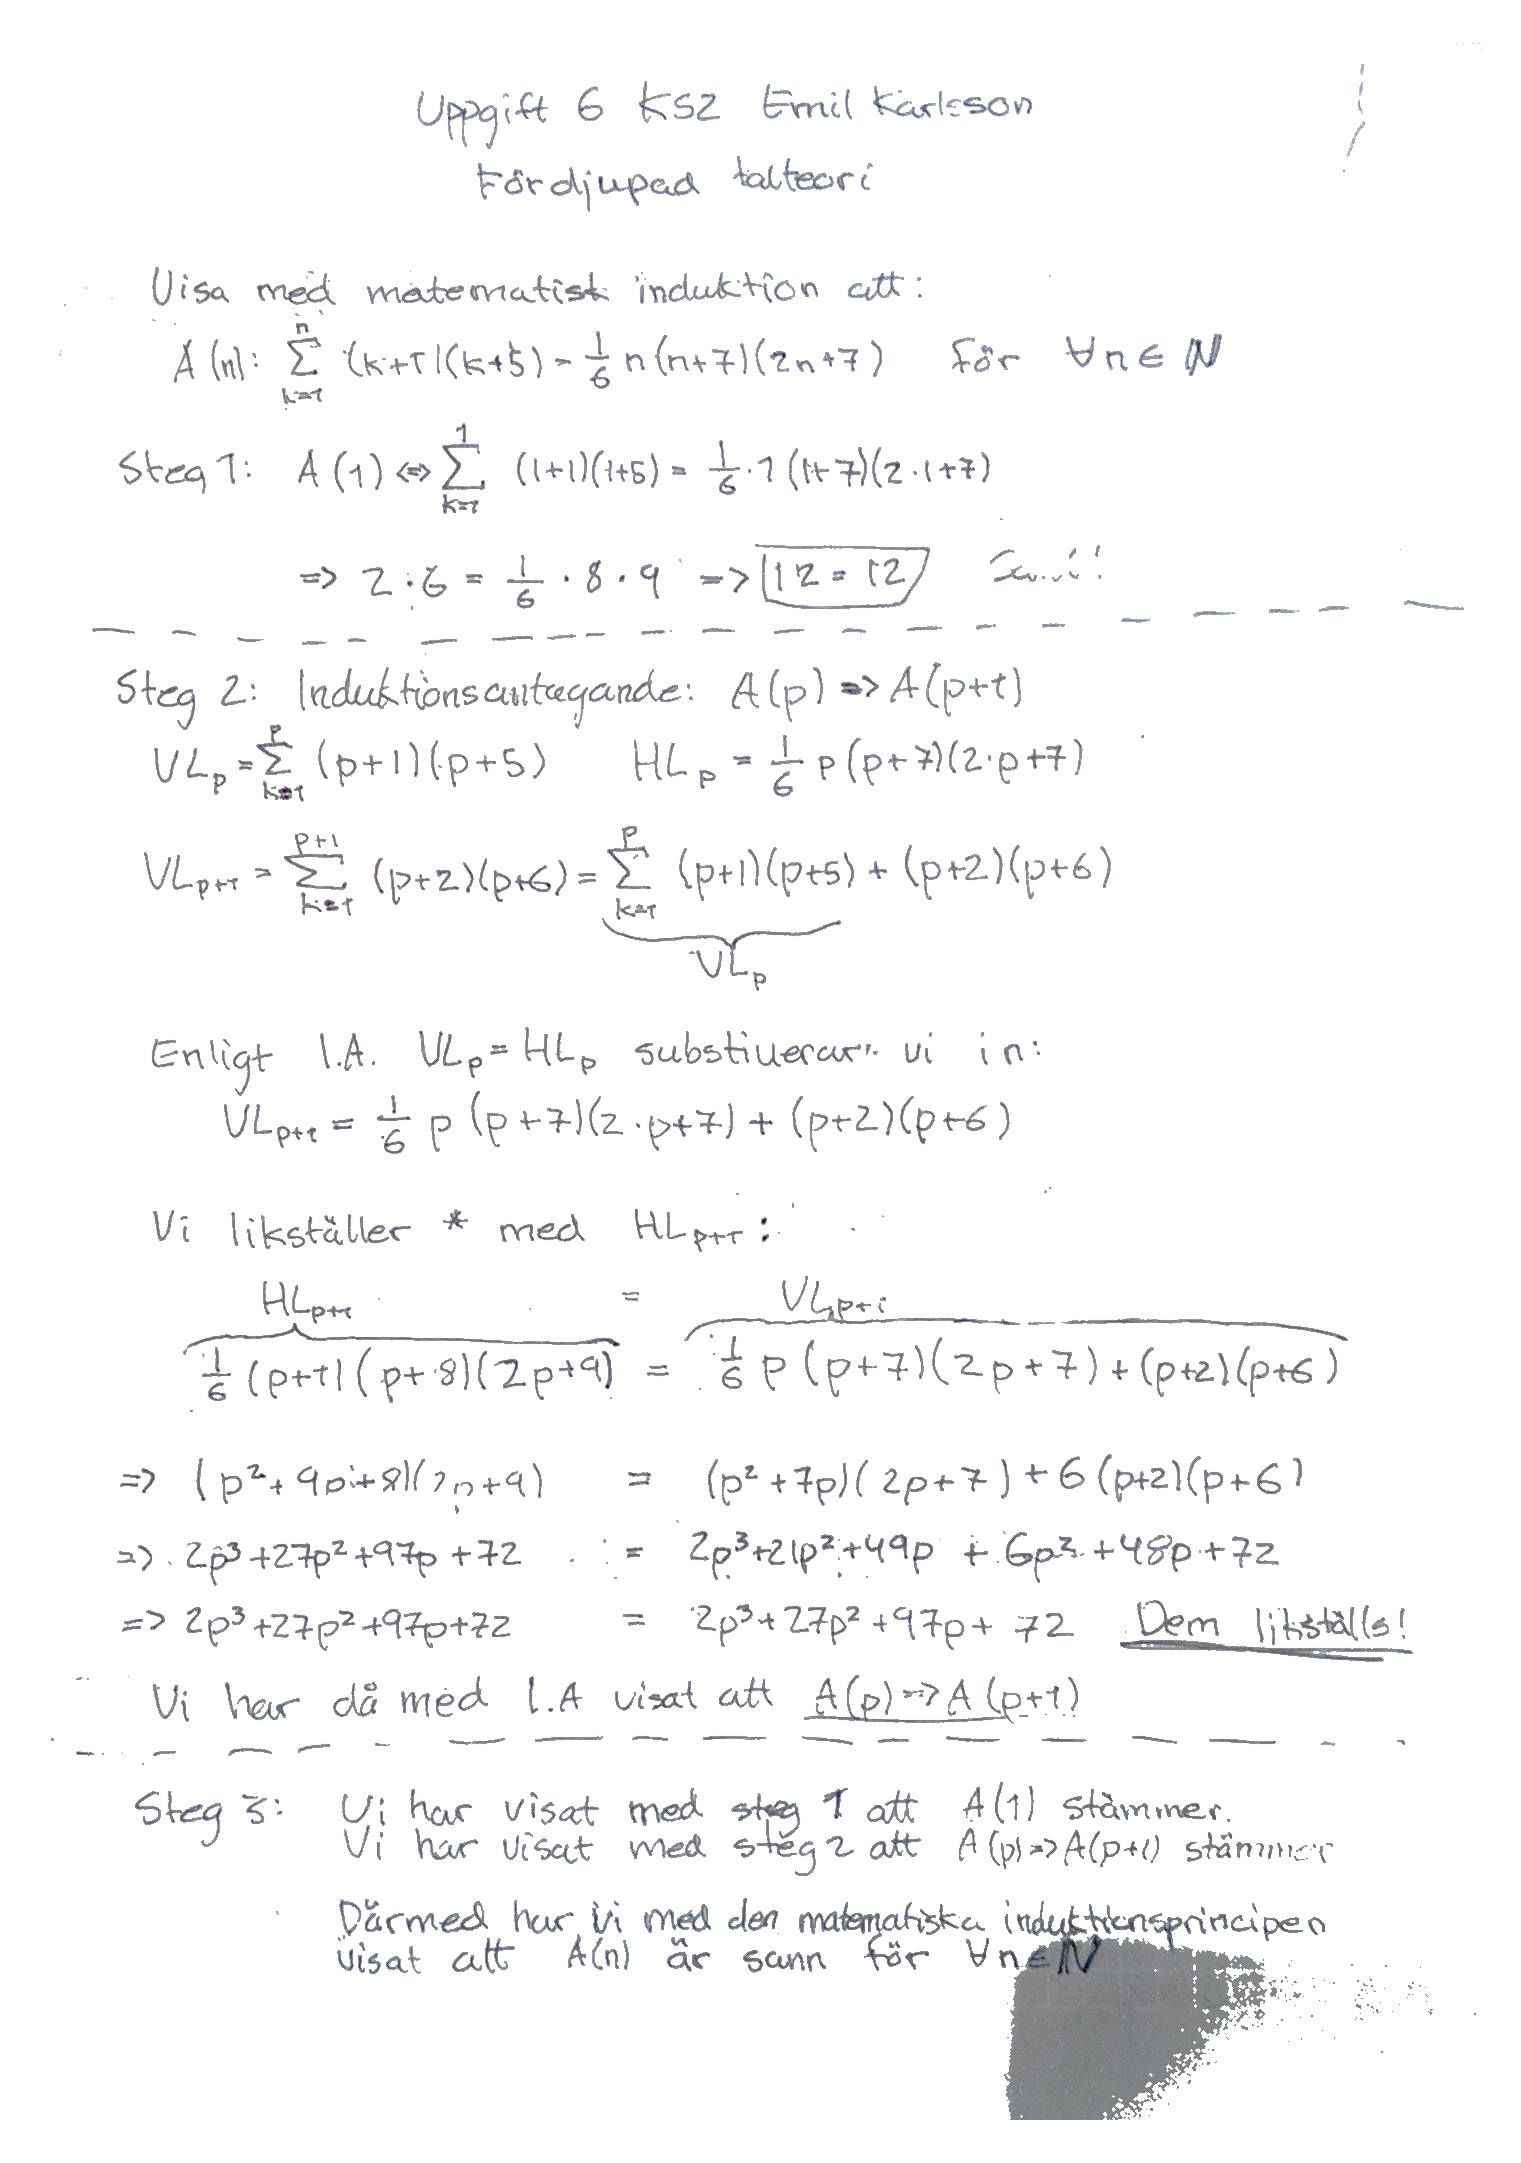 Uppgift 6 KS2 Emil Karlsson
Fördjupad talteori
Visa med matematisk induktion att:
A(n): ∑_{k=1}^{n} (k+1)(k+5) = 1/6 n(n+7)(2n+7) för ∀n∈ℕ
Steg 1: A(1) <=> ∑_{k=1}^{1} (1+1)(1+5) = 1/6 · 1 (1+7)(2·1+7)
=> 2·6 = 1/6 · 8 · 9 => 12 = 12
Steg 2: Induktionsantagande: A(p) => A(p+1)
VL_p = ∑_{k=1}^{p} (p+1)(p+5) HL_p = 1/6 p(p+7)(2·p+7)
VL_{p+1} = ∑_{k=1}^{p+1} (p+2)(p+6) = ∑_{k=1}^{p} (p+1)(p+5) + (p+2)(p+6)
VL_p
Enligt I.A. VL_p = HL_p substiuerar vi in:
VL_{p+1} = 1/6 p (p+7)(2·p+7) + (p+2)(p+6)
Vi likställer * med HL_{p+1}:
HL_{p+1} = VL_{p+1}
1/6 (p+1)(p+8)(2p+9) = 1/6 p (p+7)(2p+7) + (p+2)(p+6)
=> (p²+9p+8)(2p+9) = (p²+7p)(2p+7) + 6(p+2)(p+6)
=> 2p³+27p²+97p+72 = 2p³+21p²+49p + 6p²+48p+72
=> 2p³+27p²+97p+72 = 2p³+27p²+97p+72 Dem likställs!
Vi har då med I.A visat att A(p) => A(p+1)
Steg 3: Vi har visat med steg 1 att A(1) stämmer.
Vi har visat med steg 2 att A(p) => A(p+1) stämmer
Därmed har vi med den matematiska induktionsprincipen
visat att A(n) är sann för ∀n∈ℕ